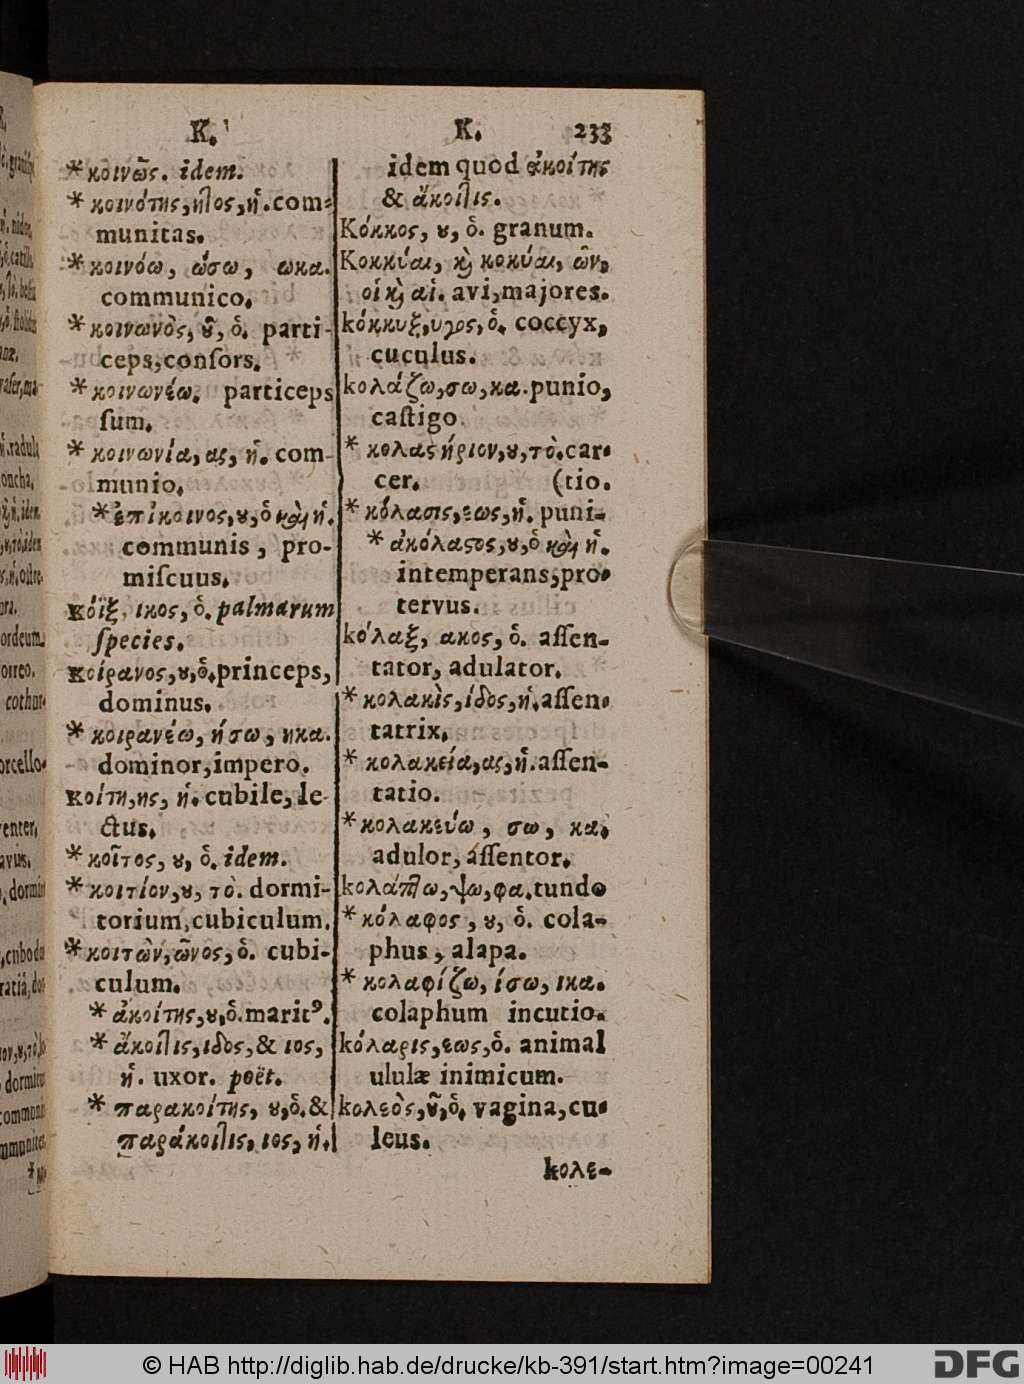 K.
* κοινῶς. idem.
* κοινότης, ητος, ἡ. com-
munitas.
* κοινόω, ώσω, ωκα.
communico.
* κοινωνὸς, ȣ͂, ὁ. parti-
ceps, conſors.
* κοινωνέω. particeps
ſum.
* κοινωνία, ας, ἡ. com-
munio.
* ἐπίκοινος, ȣ, ὁ καὶ ἡ.
communis, pro-
miſcuus.
κόϊξ, ικος, ὁ. palmarum
ſpecies.
κοίρανος, ȣ, ὁ. princeps,
dominus.
* κοιρανέω, ήσω, ηκα.
dominor, impero.
κοίτη, ης, ἡ. cubile, le-
ctus.
* κοῖτος, ȣ, ὁ. idem.
* κοιτίον, ȣ, τὸ. dormi-
torium, cubiculum.
* κοιτὼν, ῶνος, ὁ. cubi-
culum.
* ἀκοίτης, ȣ, ὁ. maritꝰ.
* ἄκοιτις, ιδος, & ιος,
ἡ. uxor. poët.
* παρακοίτης, ȣ, ὁ. &
παράκοιτις, ιος, ἡ.
K. 233
idem quod ἀκοίτης
& ἄκοιτις.
Κόκκος, ȣ, ὁ. granum.
Κοκκύαι, ϗ κοκύαι, ῶν,
οἱ ϗ αἱ. avi, majores.
κόκκυξ, υγος, ὁ. coccyx,
cuculus.
κολάζω, σω, κα. punio,
caſtigo.
* κολαϛήριον, ȣ, τὸ. car-
cer. (tio.
* κόλασις, εως, ἡ. puni-
* ἀκόλαϛος, ȣ, ὁ καὶ ἡ.
intemperans, pro-
tervus.
κόλαξ, ακος, ὁ. aſſen-
tator, adulator.
* κολακὶς, ίδος, ἡ. aſſen-
tatrix.
* κολακεία, ας, ἡ. aſſen-
tatio.
* κολακεύω, σω, κα.
adulor, aſſentor.
κολάπτω, ψω, φα. tundo
* κόλαφος, ȣ, ὁ. cola-
phus, alapa.
* κολαφίζω, ίσω, ικα.
colaphum incutio.
κόλαρις, εως, ὁ. animal
ululæ inimicum.
κολεὸς, ȣ͂, ὁ. vagina, cu-
leus.
κολε-
© HAB http://diglib.hab.de/drucke/kb-391/start.htm?image=00241
DFG